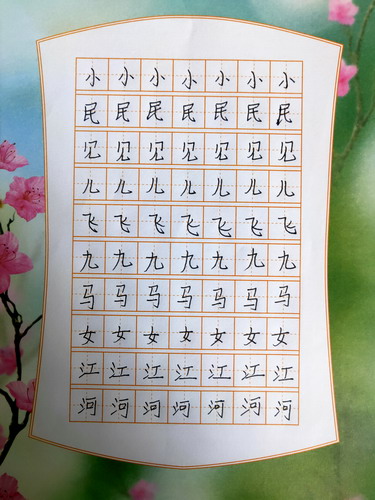 小小小小小小小
民民民民民民民
见见见见见见见
儿儿儿儿儿儿儿
飞飞飞飞飞飞飞
九九九九九九九
马马马马马马马
女女女女女女女
江江江江江江江
河河河河河河河